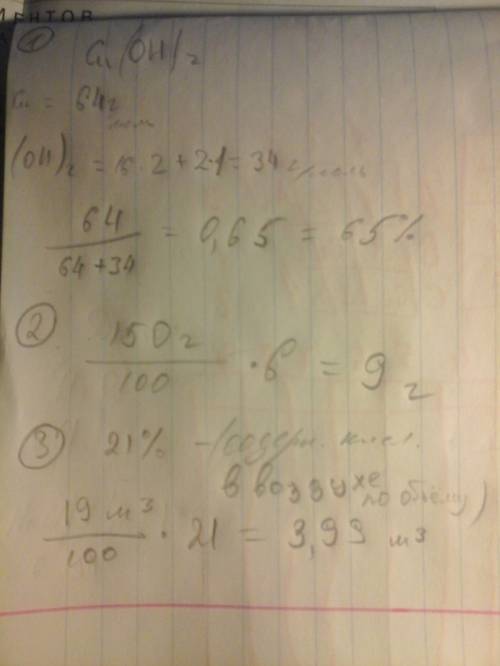 МЕНТОВ
1
Cu(OH)₂
Cu = 64 г/моль
(OH)₂ = 16·2+2·1 = 34 г/моль
64/(64+34) = 0,65 = 65%
2
150 г/100 · 6 = 9 г
3) 21% - (содерж. кисл.
в воздухе по объёму)
19 м³/100 · 21 = 3,99 м³